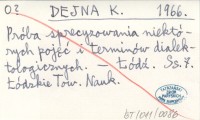 02 DEJNA K. 1966.
Próba sprecyzowania niektó-
rych pojęć i terminów dialek-
tologicznych. — Łódź. Ss. 7.
Łódzkie Tow. Nauk.
BT/OM/0086